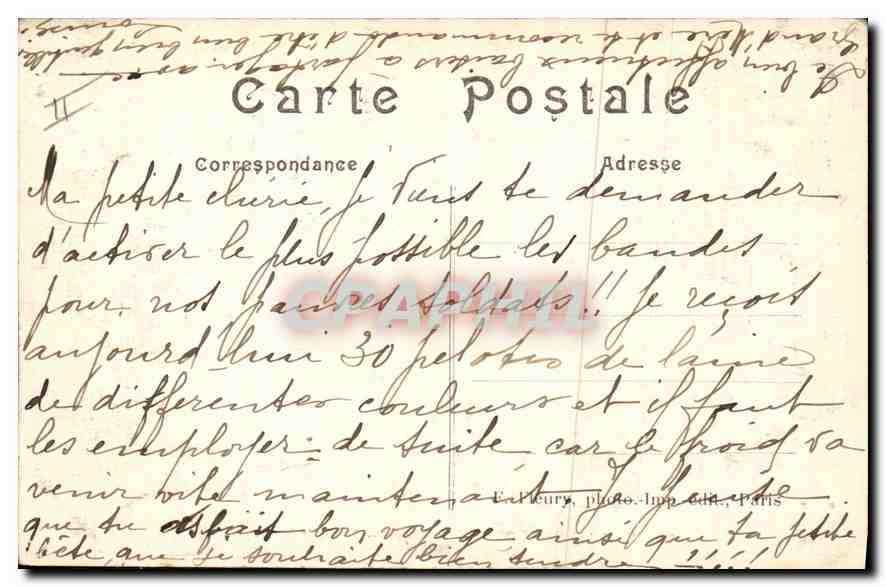 Carte Postale
Correspondance
Adresse
Ma petite chérie, je viens te demander
d'activer le plus possible les bandes
pour nos pauvres soldats!! Je reçoit
aujourd'hui 30 pelotes de laine
de differentes couleurs et il faut
les employer de suite car le froid va
venir vite maintenant
que tu bon voyage ainsi que ta petite
bête, que je souhaite bien tendre !!!!
E. Fleury, photo.-Imp. édit., Paris
bien affectueux baisers a partager avec
Grand'Mère et te recommande d'être bien gentille,
II
CPAPHIL